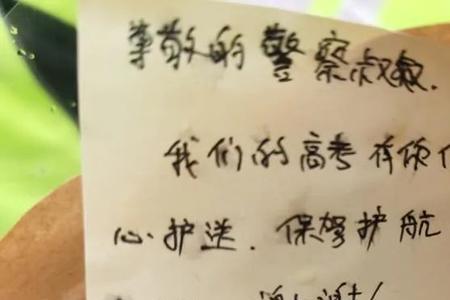 尊敬的警察叔叔.
我们的高考有你
心护送.保驾护航